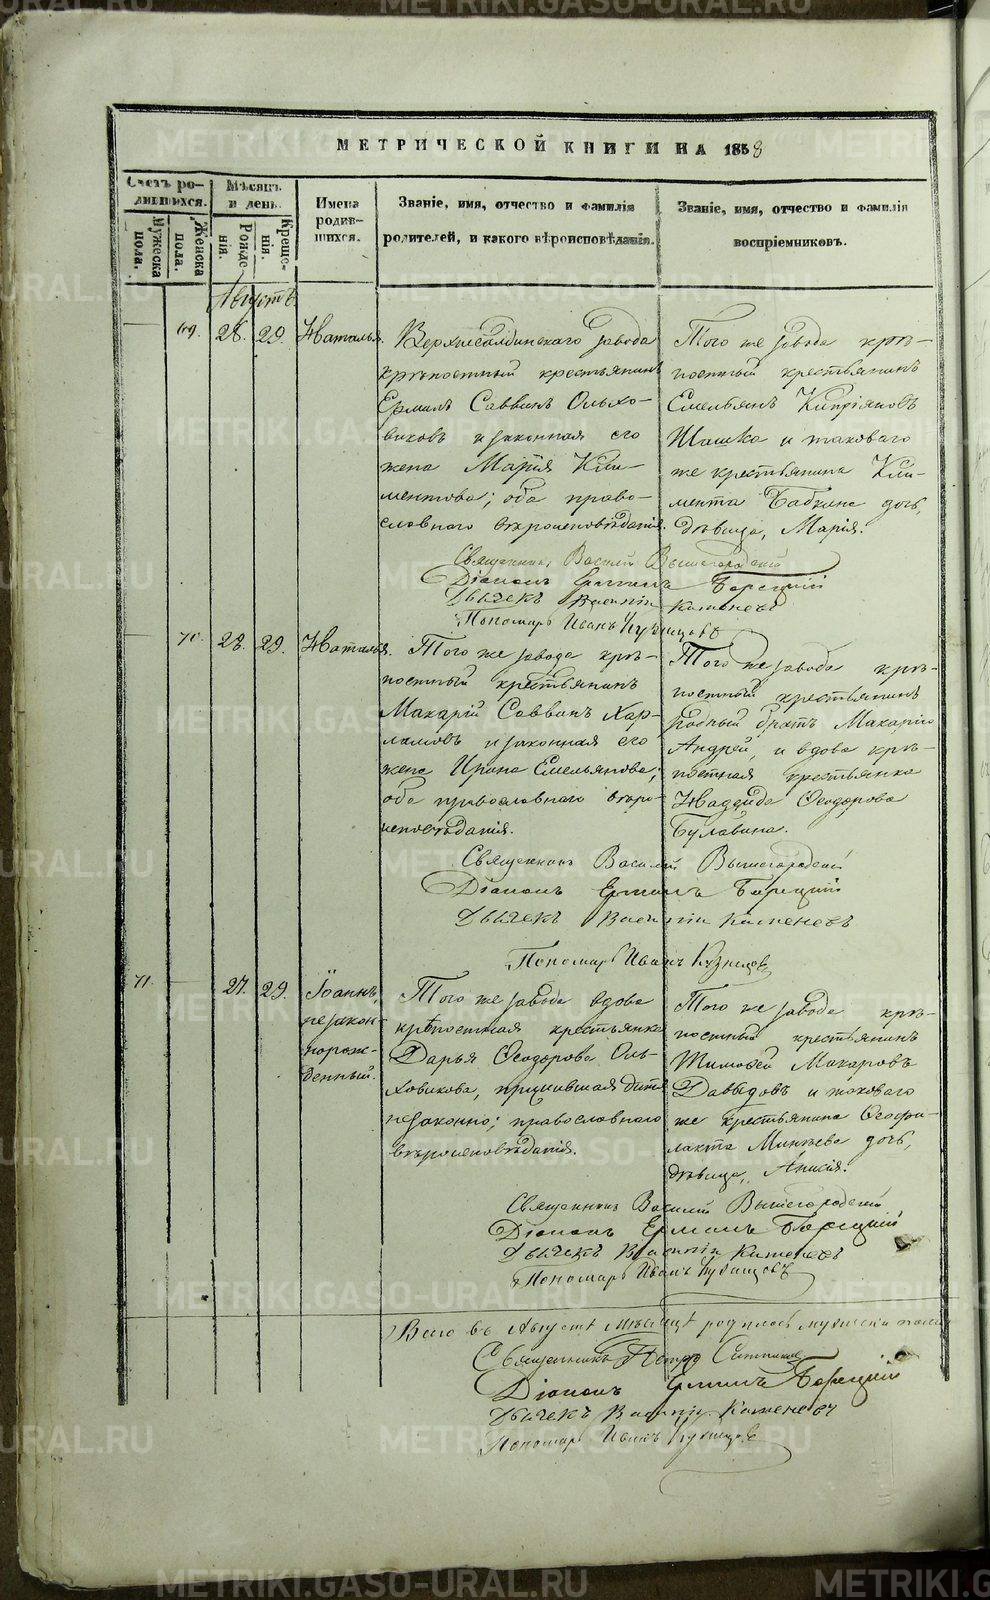 МЕТРИЧЕСКОЙ КНИГИ НА 1858
Счетъ родившихся.
Мужеска пола.
Женска пола.
Мѣсяцъ и день.
Рожденія.
Крещенія.
Имена родившихся.
Званіе, имя, отчество и фамилія
родителей, и какого вѣроисповѣданія.
Званіе, имя, отчество и фамилія
воспріемниковъ.
Августъ
69. 28. 29. Наталья.
Верхнесалдинскаго завода
крѣпостный крестьянинъ
Ермилъ Саввинъ Ольхо-
виковъ и законная его
жена Марія Кли-
ментова; оба право-
славнаго вѣроисповѣданія.
Того же завода крѣ-
постный крестьянинъ
Емельянъ Кипріяновъ
Шашка и таковаго
же крестьянина Кли-
мента Бабкина дочь,
дѣвица, Марія.
Священникъ Василій Вышегородскій
Діаконъ Ермилъ Борецкій
Дьячекъ Василій Каменевъ
Пономарь Иванъ Кузнецовъ
70. 28. 29. Наталья.
Того же завода крѣ-
постный крестьянинъ
Макарій Саввинъ Хар-
ламовъ и законная его
жена Ирина Емельянова;
оба православнаго вѣро-
исповѣданія.
Того же завода крѣ-
постный крестьянинъ
родный братъ Макарія
Андрей, и вдова крѣ-
постная крестьянка
Надежда Ѳеодорова
Булавина.
Священникъ Василій Вышегородскій
Діаконъ Ермилъ Борецкій
Дьячекъ Василій Каменевъ
Пономарь Иванъ Кузнецовъ
71. 27. 29. Іоаннъ,
незакон-
норож-
денный.
Того же завода вдова
крѣпостная крестьянка
Дарья Ѳеодорова Оль-
ховикова, прижившая дитя
незаконно; православнаго
вѣроисповѣданія.
Того же завода крѣ-
постный крестьянинъ
Тимоѳей Макаровъ
Давыдовъ и таковаго
же крестьянина Ѳеофи-
лакта Минѣева дочь,
дѣвица, Анисія.
Священникъ Василій Вышегородскій
Діаконъ Ермилъ Борецкій
Дьячекъ Василій Каменевъ
Пономарь Иванъ Кузнецовъ
Всего въ Августѣ мѣсяцѣ родилось мужеска пола
Священникъ Петръ
Діаконъ Ермилъ Борецкій
Дьячекъ Василій Каменевъ
Пономарь Иванъ Кузнецовъ
METRIKI.GASO-URAL.RU